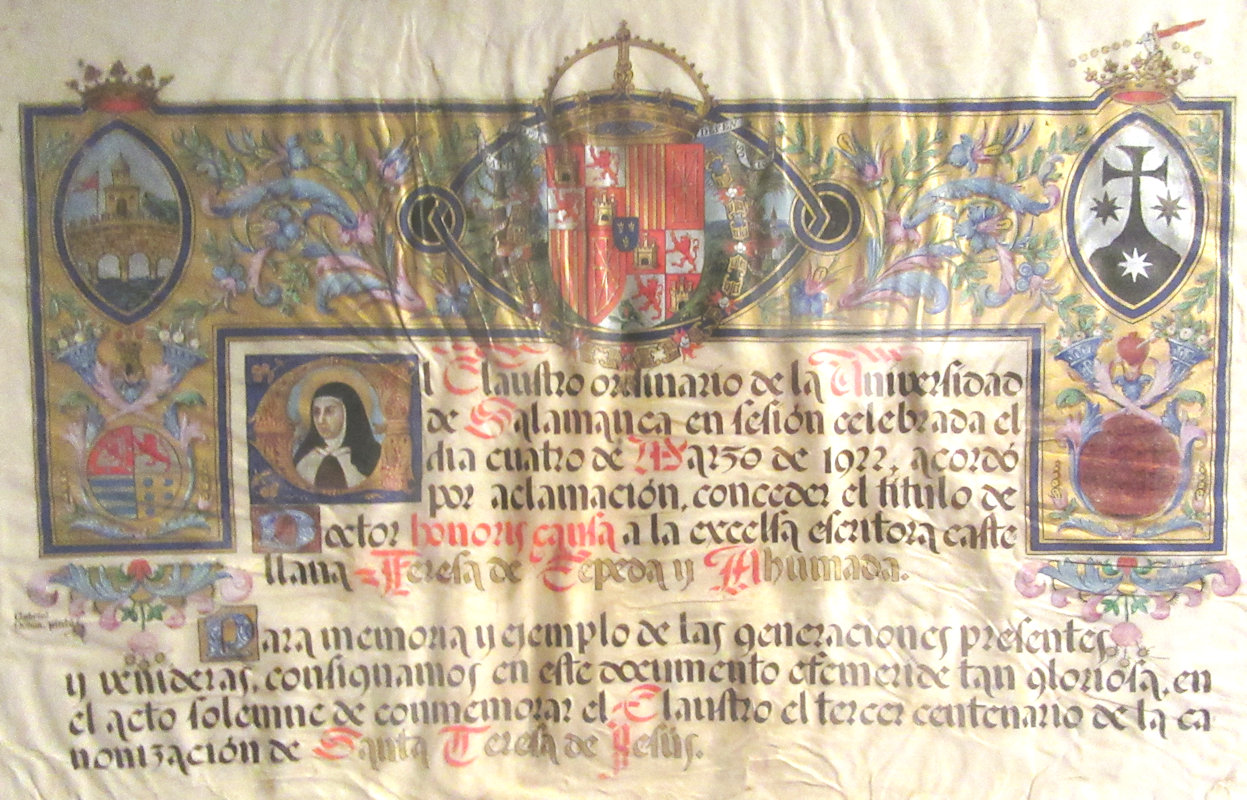 El Claustro ordinario de la Universidad
de Salamanca en sesión celebrada el
dia cuatro de Marzo de 1922, acordó
por aclamación, conceder el titulo de
Doctor honoris causa a la excelsa escritora caste
llana Teresa de Cepeda y Ahumada.
Para memoria y ejemplo de las generaciones presentes
y venideras, consignamos en este documento efemeride tan gloriosa, en
el acto solemne de conmemorar el Claustro el tercer centenario de la ca
nonización de Santa Teresa de Jesús.